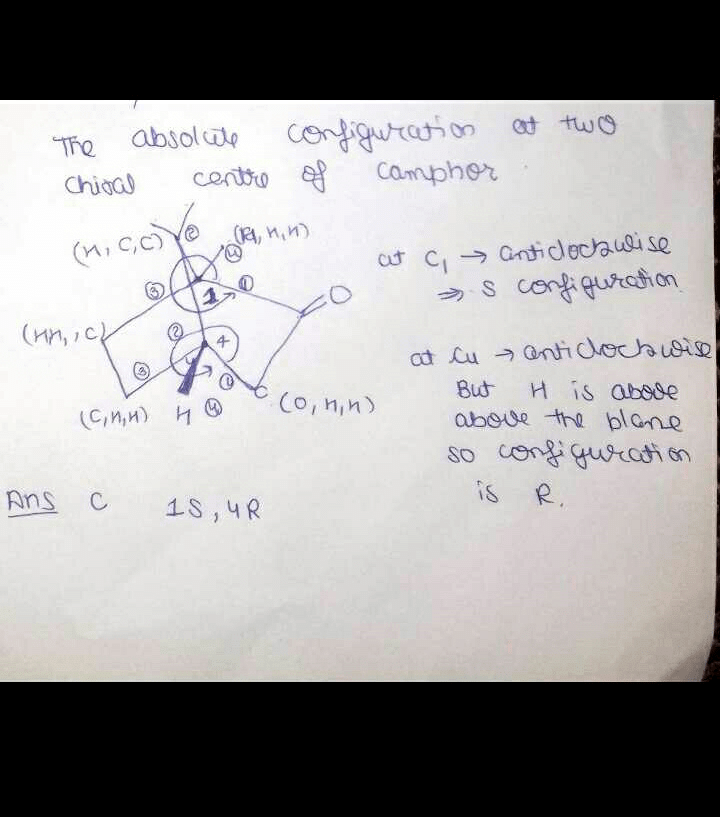 The absolute configuration at two
chiral centre of camphor.
(H, C, C) ② (H, H, H)
④
③ 1 ① O
at C₁ → anticlockwise
⇒ S configuration.
② 4
③ ①
C (O, H, H)
(C, H, H) H ④
at C4 → anticlockwise
But H is above
above the plane
so configuration
is R.
Ans C 1S, 4R